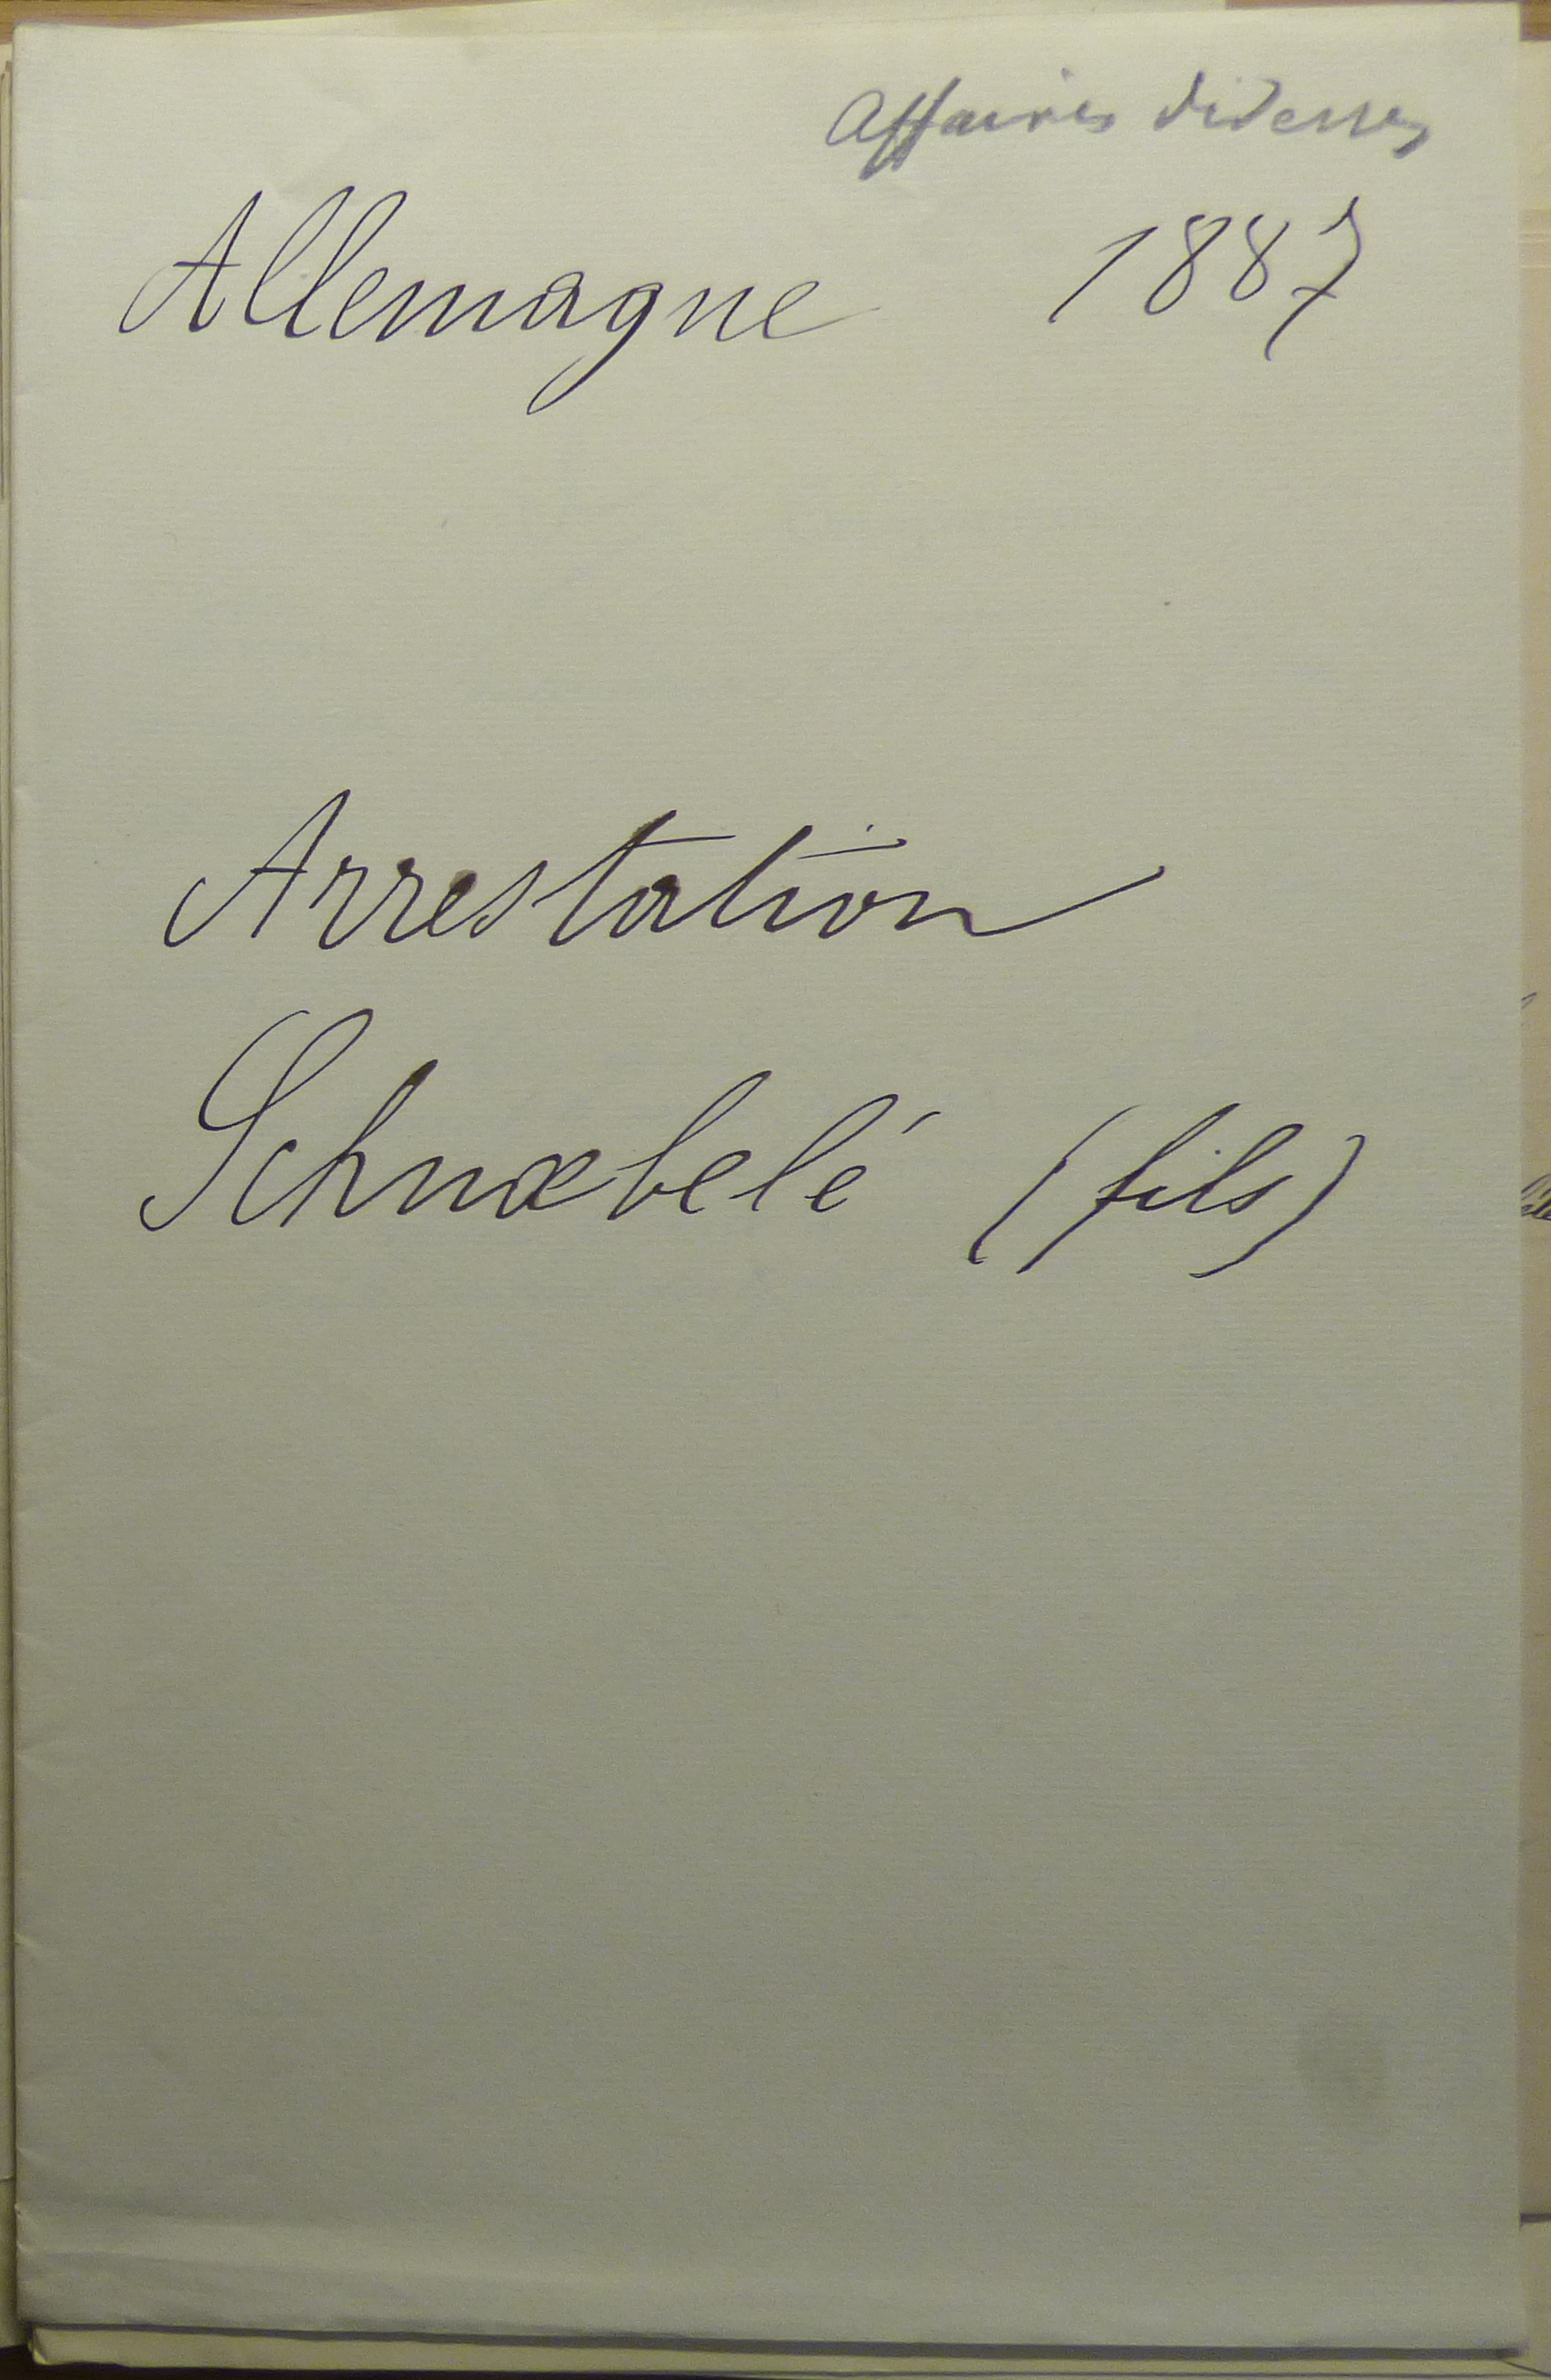 Affaires diverses
Allemagne 1887
Arrestation
Schnæbelé (fils)